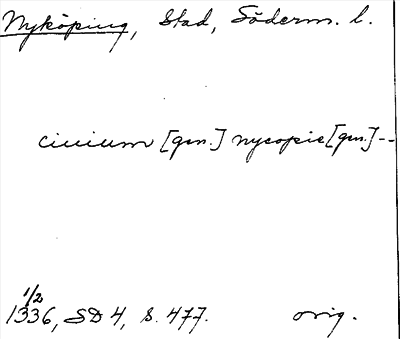 Nyköping, Stad, Söderm. l.
civium [gen.] nycopie [gen.] --
1/2
1336, SD 4, s. 477. orig.